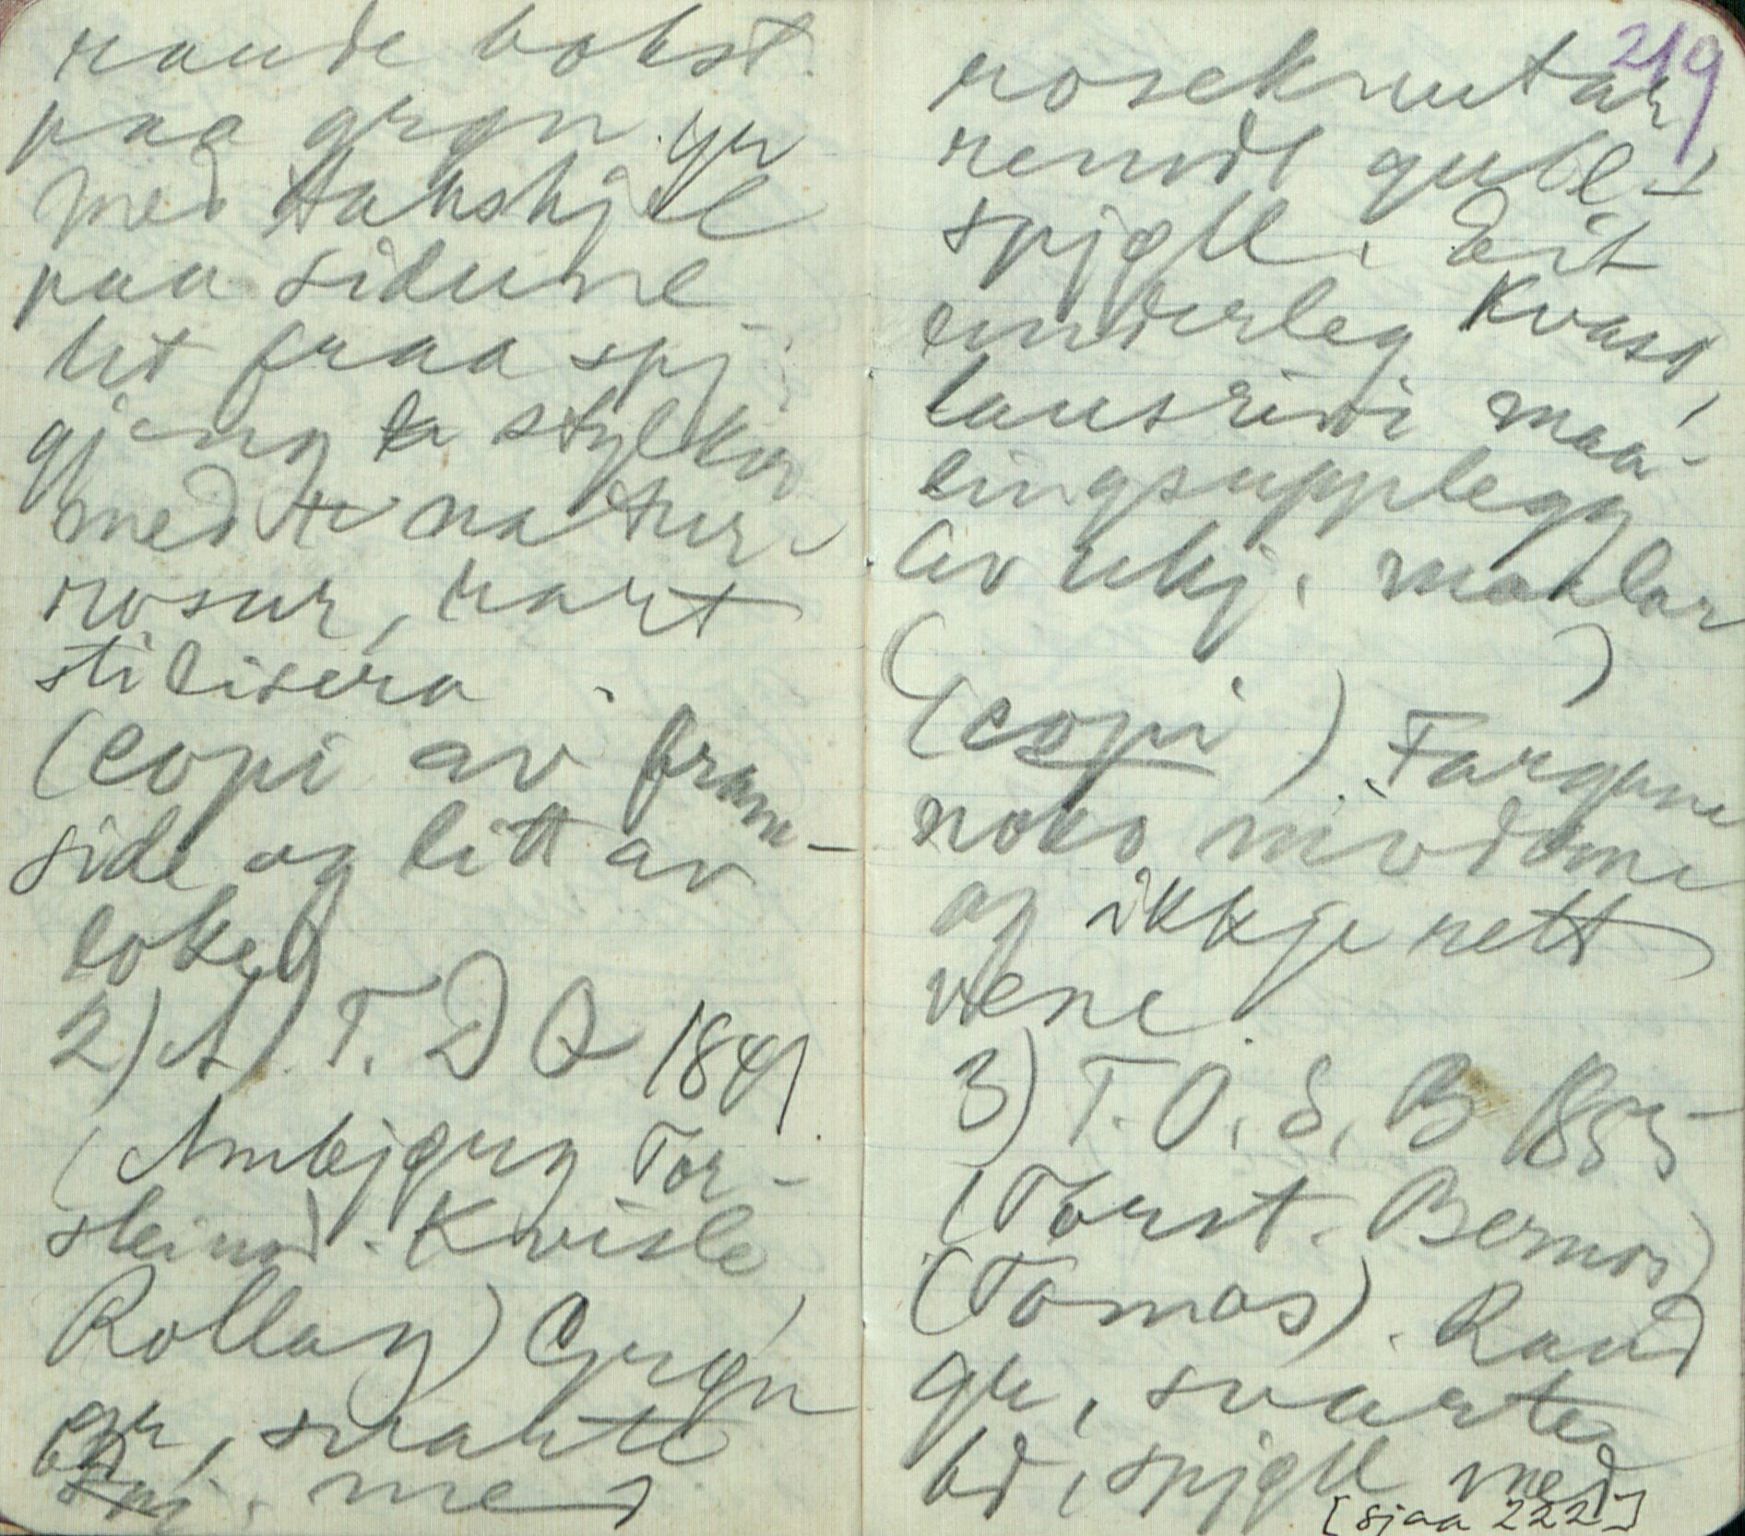 raude bokst.
paa grøn gr
med takskjel
paa sidune
lit fraa spj
gjeng stylkar
med natur-
rosur, rart
stilisera.
(copi av fram-
side og litt av
loket)
2) A. T. D Q 1841.
(Ambjørg Tor-
steinsd. Kvisle
Rollag) Grøn
gr, svarte
bd. med
219
rosekrutar
rundt gule
spjøll. Eit
underleg kvast,
lausrivi maa-
lingsupplegg
av ukj. maalar
(copi) Fargane
noko nivdame
og ikkje rett
vene.
3) T. O. S. B 1855
(Torst. Bernos)
(Tomas). Raud
gr, svarte
bd, spjøll med
[sjaa 222]